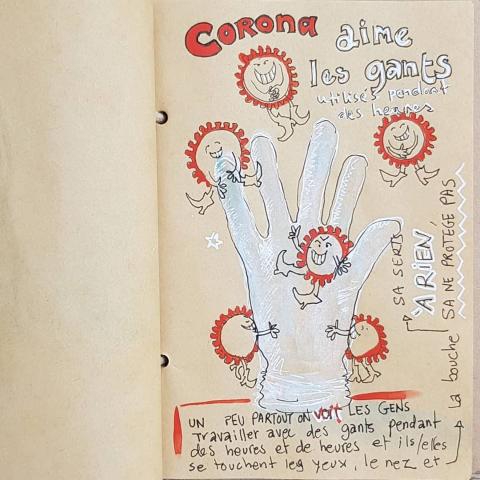 Corona aime
les gants
utilisés pendant
des heures
SA SERT
À RIEN,
SA NE PROTÈGE PAS
UN PEU PARTOUT ON voit LES GENS
Travailler avec des gants pendant
des heures et de heures et ils/elles
se touchent les yeux, le nez et
la bouche